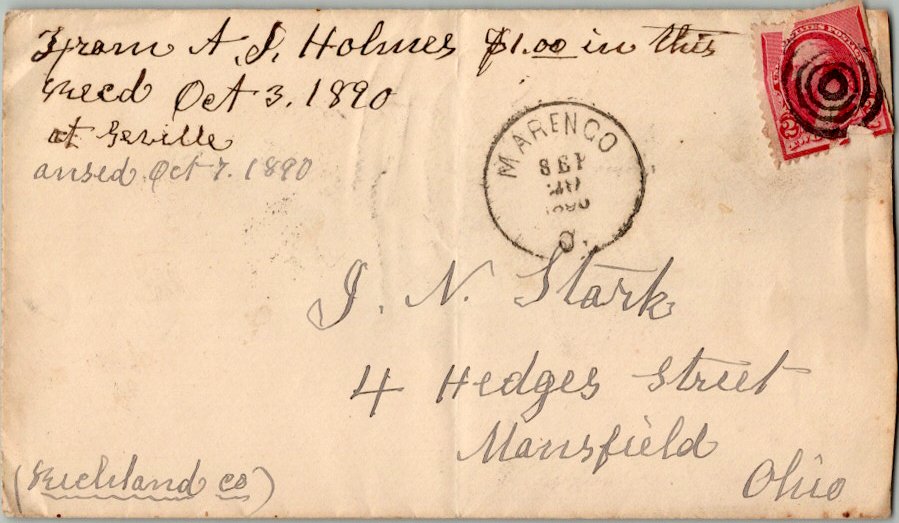 From A. J. Holmes $1.00 in this
Recd Oct 3. 1890
at Seville
ansed Oct 7. 1890
MARENGO
SEP
1890
O.
J. N. Stark
4 Hedges Street
Mansfield
Ohio
(Richland co)